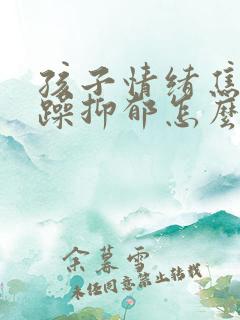 孩子情绪焦
躁抑郁怎麽
余暮雪
未经同意禁止转载